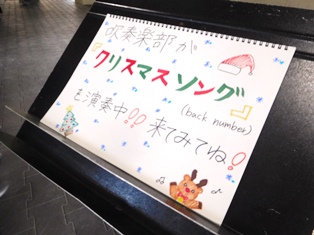 吹奏楽部が
クリスマスソング
(back number)
を演奏中!!来てみてね!